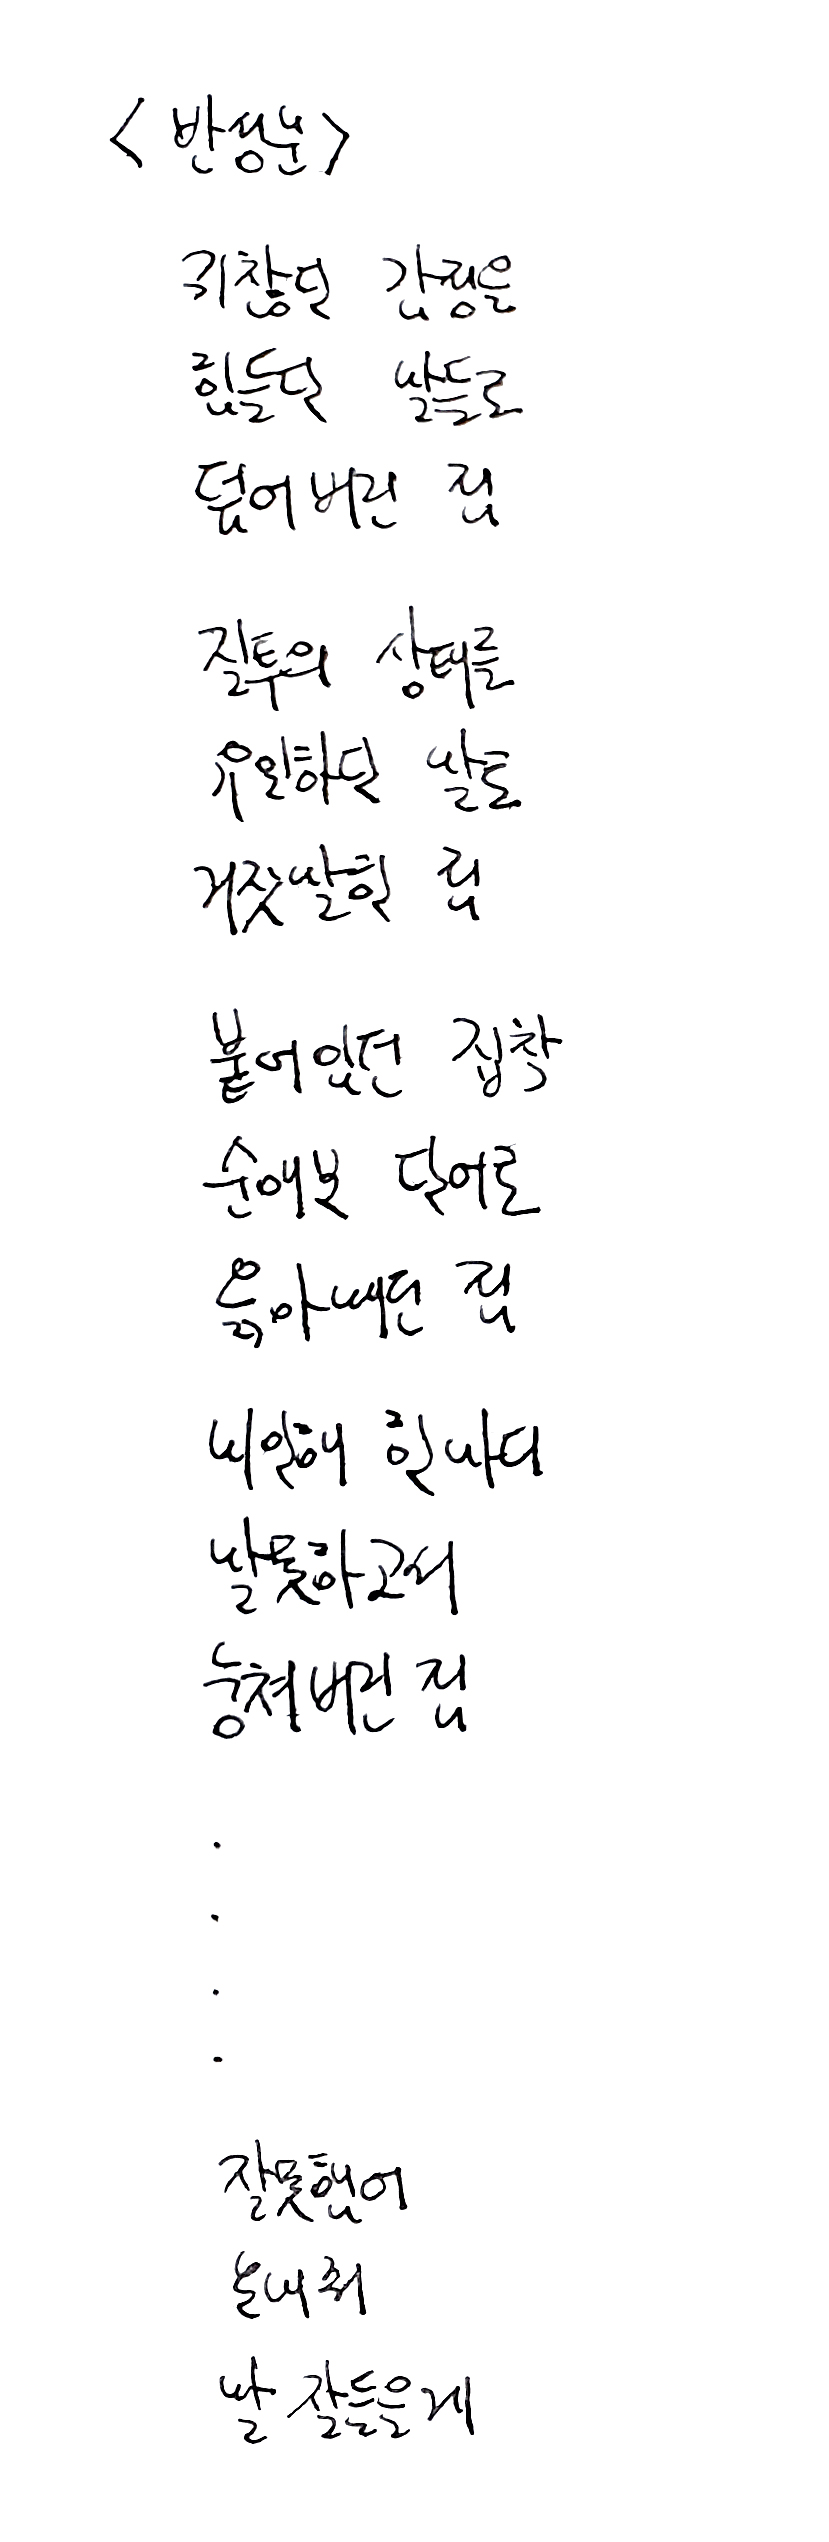 <반성문>
귀찮단 감정을
힘들단 말들로
덮어버린 점
질투의 상태를
우울하단 말로
거짓말한 점
붙어있던 집착
순애보 단어로
옭아매던 점
미안해 한마디
말못하고서
놓쳐버린 점
.
.
.
.
잘못했어
보내줘
말 잘들을게